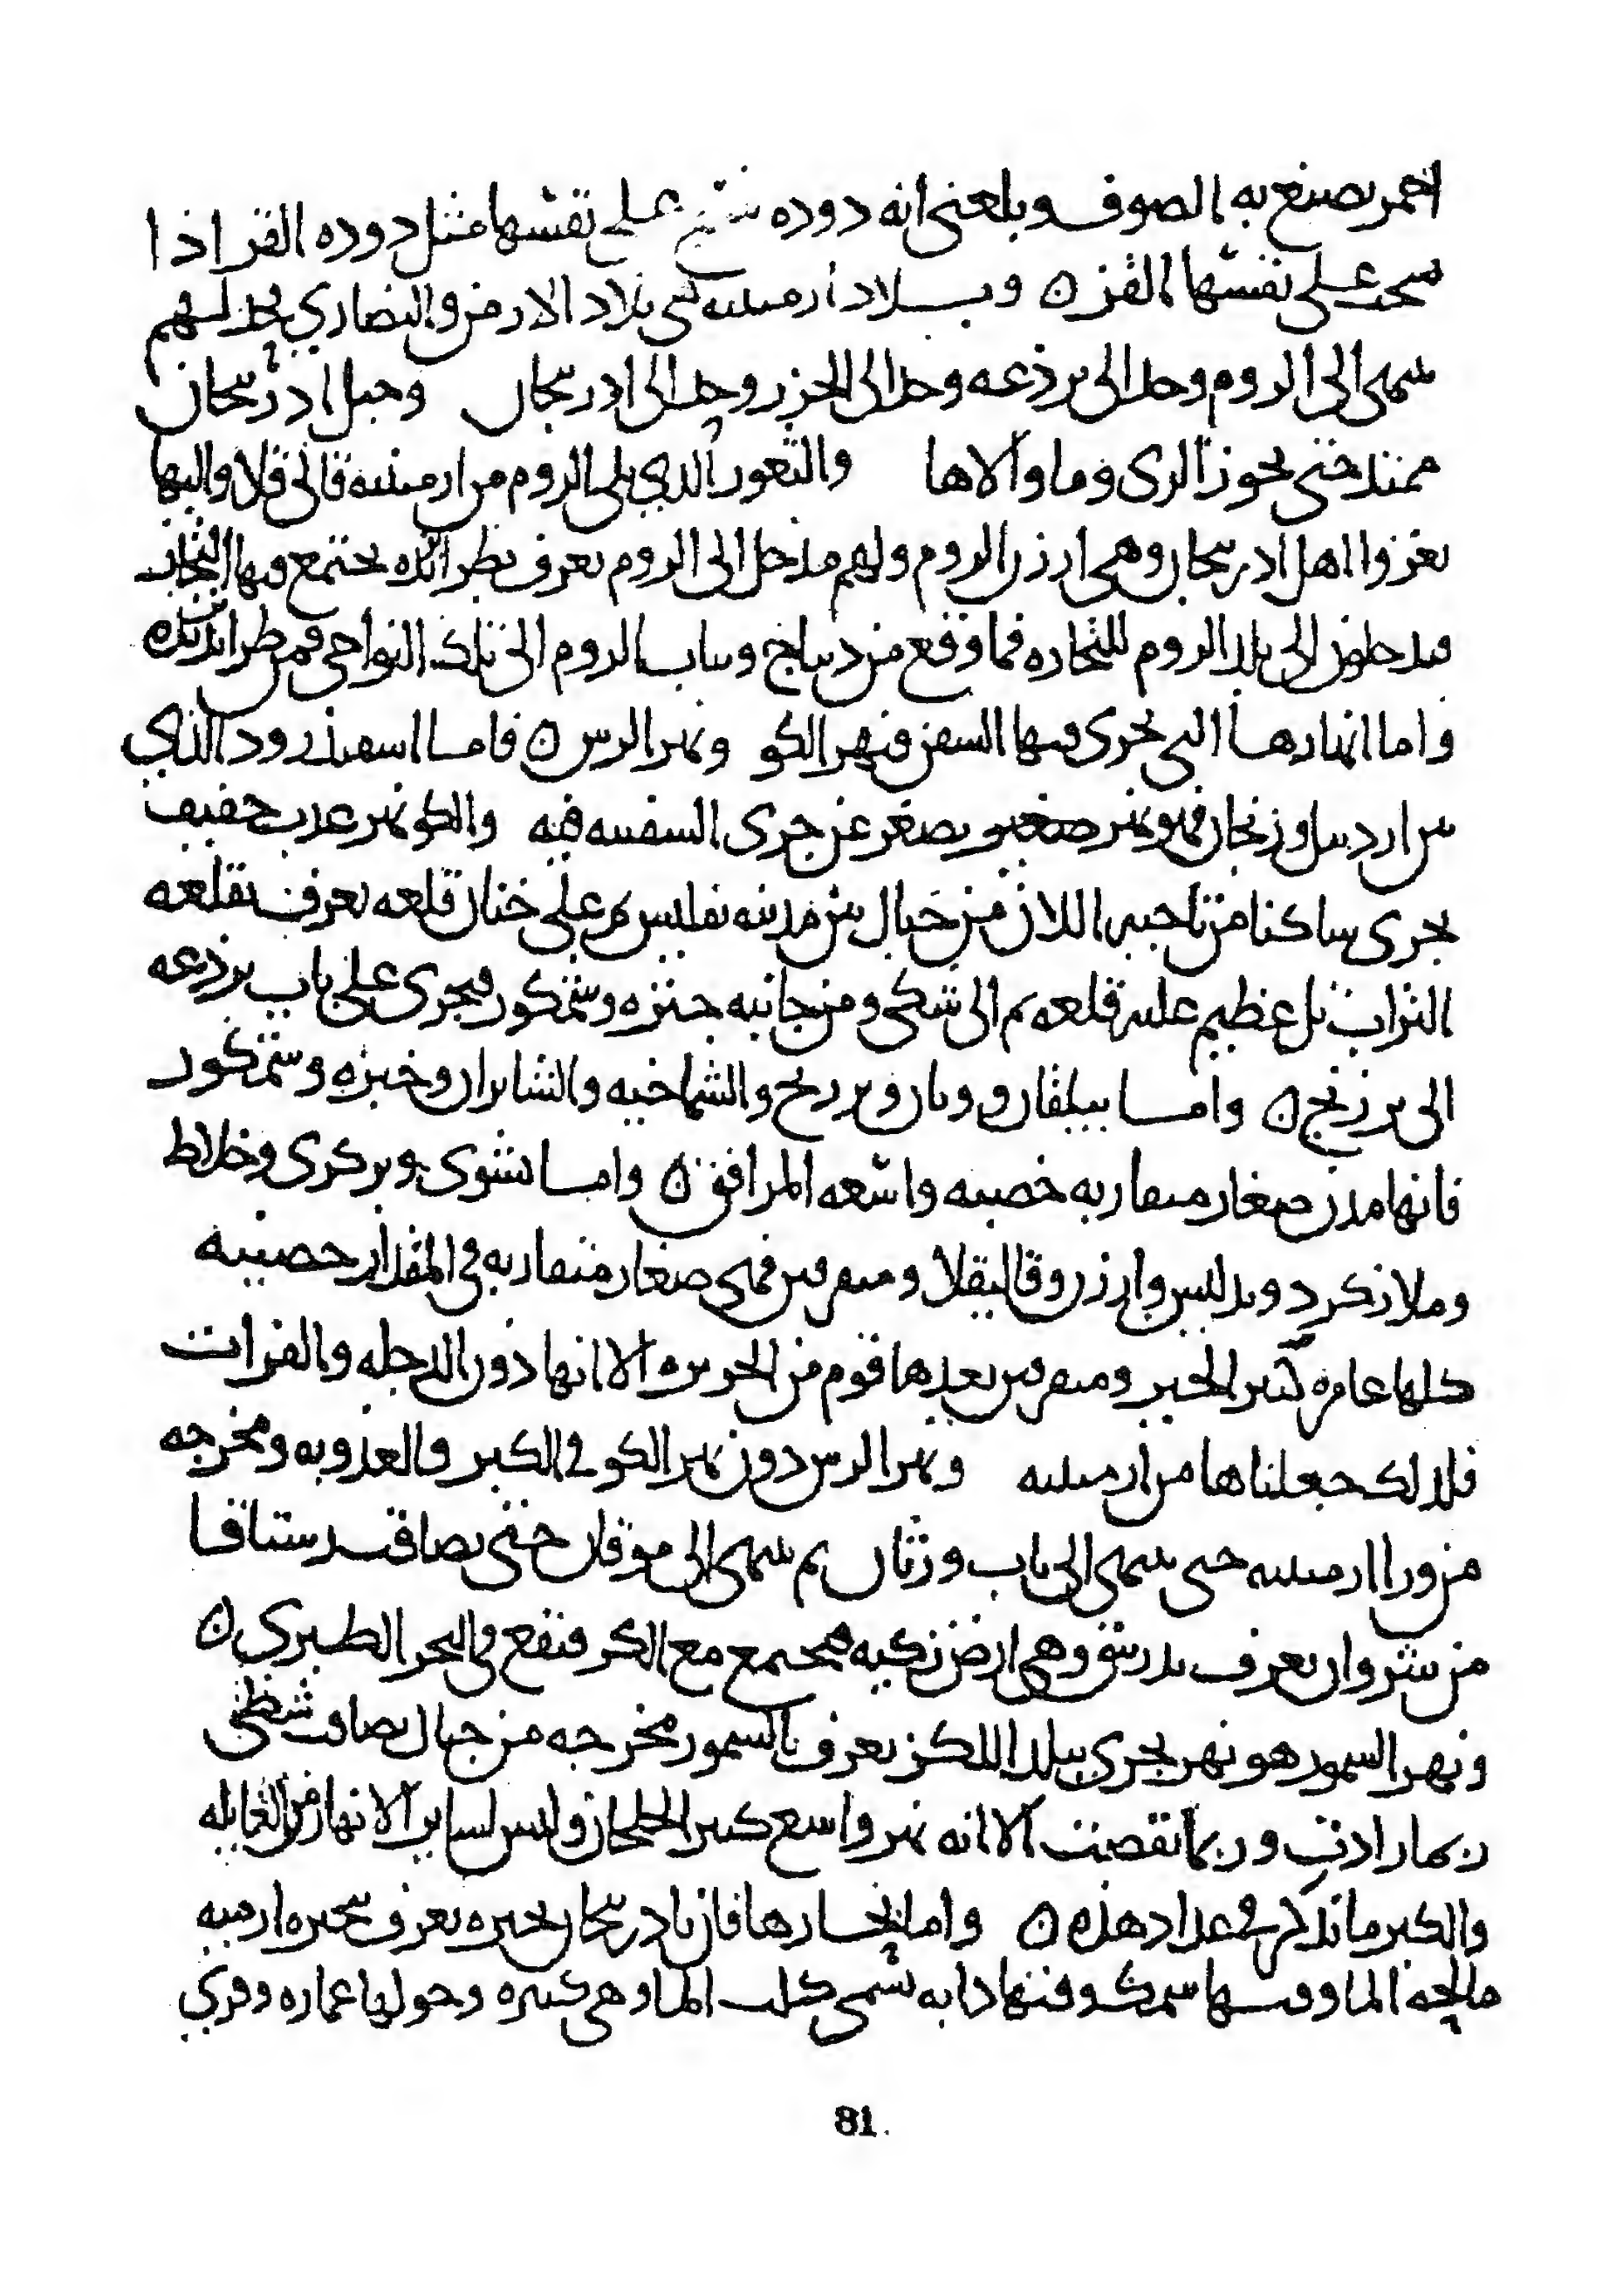 احمر يصبغ به الصوف وبلغني انه دوده تنسج على نفسها مثل دوده القز اذا
نسجت على نفسها القز ن وبلاد ارمينيه هي بلاد الارمن والنصارى بحد لهم
ينتهي الى الروم وحد الى برذعه وحد الى الخزر وحد الى ادربيجان وجبل ادربيجان
ممتد حتى يجوز الرى وما والاها والثغور الذي يلي الروم من ارمينيه قالي قلا واليها
يغزوا اهل ادربيجان وهي ارزن الروم ولهم مدخل الى الروم يعرف بطرابزنده يجتمع فيها التجار
فيدخلون الى بلد الروم للتجاره فما وقع من ديباج وثياب الروم الى تلك النواحي فمن طرابزنده
واما انهارها التي تجرى فيها السفن فنهر الكر ونهر الرس ن فاما اسفيذرود الذي
بين اردبيل وزنجان فهو نهر صغير يصغر عن جرى السفينه فيه والكر نهر عذب خفيف
يجرى ساكنا من ناحيه اللان من جبال بين مدينه تفليس ثم على خنان قلعه تعرف بقلعه
التراب تل عظيم عليه قلعه ثم الى شكى ومن جانبه جنزه وشمكور فيجرى على باب برذعه
الى برزنج ن واما بيلقان وورثان وبرديج والشماخيه والشابران وجنزه وشمكور
فانها مدن صغار متقاربه خصبه واسعه المرافق ن واما نشوى وبركرى وخلاط
وملازكرد وبدليس وارزن وقاليقلا وميافرقين فهى صغار متقاربه في المقدار خصيبه
كلها عامره كثير الخير وميافرقين يعدها قوم من الجزيره الا انها دون الدجله والفرات
فلذلك جعلناها من ارمينيه ونهر الرس دون نهر الكر في الكبر والعذوبه ومخرجه
من ورا ارمينيه حتى ينتهى الى باب ورثان ثم ينتهى الى موقان حتى يصاقب رستاقا
من شروان يعرف وهى ارض زكيه فيجتمع مع الكر فتقع في البحر الطبري ن
ونهر السمور هو نهر يجرى ببلد اللكز يعرف بالسمور مخرجه من جبال تصاقب
ربما زادت وربما نقصت الا انه نهر واسع كثير الخلجان وليس لساير الانهار من
والكبر ما تذكر في عداد هذه ن واما بحارها فان بادربيجان بحيره تعرف ببحيره ارميه
مالحه الما وفيها سمك وفيها دابه تسمى كلب الما وهي كبيره وحولها عماره وقرى
81